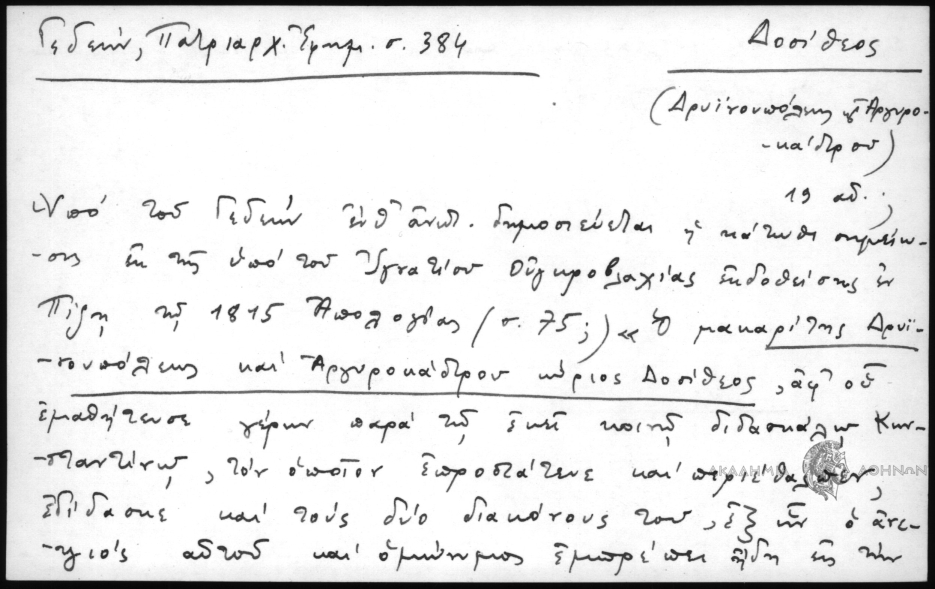 Γεδεών, Πατριαρχ. Ἐφημ. σ. 384
Δοσίθεος
(Δρυϊνουπόλεως καὶ Ἀργυρο-
-κάστρου)
19 αἰ.;
Ὑπό τοῦ Γεδεών ἔνθ' ἀνωτ. δημοσιεύεται ἡ κάτωθι σημείω-
-σις ἐκ τῆς ὑπό τοῦ Ἰγνατίου Οὐγκροβλαχίας ἐκδοθείσης ἐν
Πίζῃ τῷ 1815 Ἀπολογίας (σ. 75;) «Ὁ μακαρίτης Δρυϊ-
-νουπόλεως καί Ἀργυροκάστρου κύριος Δοσίθεος, ἀφ' οὗ
ἐμαθήτευσε γέρων παρά τῷ ἐκεῖ κοινῷ διδασκάλῳ Κων-
-σταντίνῳ, τόν ὁποῖον ἐπροστάτευε καί περιέθαλπεν,
ἐδίδασκε καί τούς δύο διακόνους του, ἐξ ὧν ὁ ἀνε-
-ψιός αὐτοῦ καί ὁμώνυμος ἐμπρέπει ἤδη εἰς τήν
ΑΚΑΔΗΜΙΑ ΑΘΗΝΩΝ